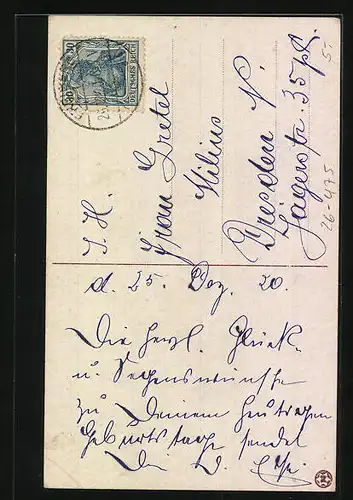 DEUTSCHES REICH
30
I. H.
Frau Gretel
Milius
Dresden N.
Jägerstr. 35 pt.
5.-
26-475
d. 25. Dez. 20.
Die herzl. Glück-
u. Segenswünsche
zu Deinem heutigen
Geburtstage sendet
Dir D.